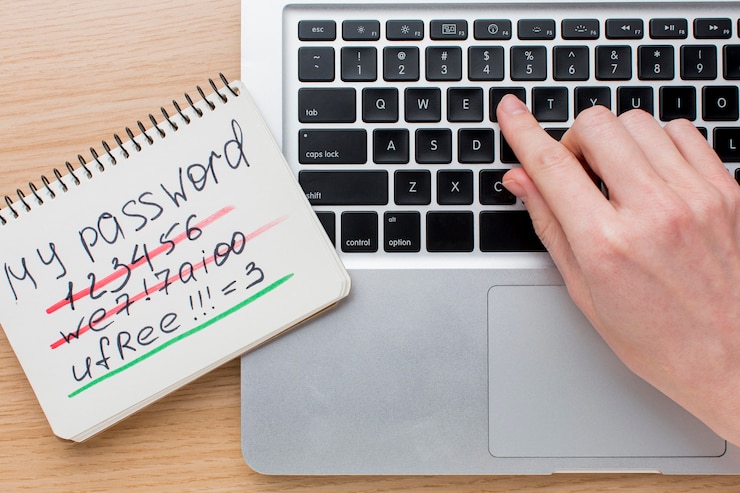 My password
123456
we7!7aioo
ufRee!!!=3
esc F1 F2 F3 F4 F5 F6 F7 F8 F9
~ ! @ # $ % ^ & * (
` 1 2 3 4 5 6 7 8 9
tab Q W E T Y U I O
caps lock A S D L
shift Z X C
alt
control option